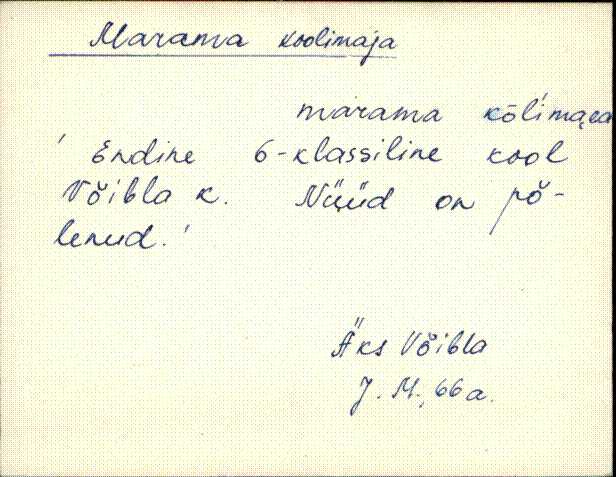 Marama koolimaja
marama kòlimaea
' Endine 6-klassiline kool
Võibla k. Nüüd on põ-
lenud.'
Äks Võibla
J. M., 66 a.